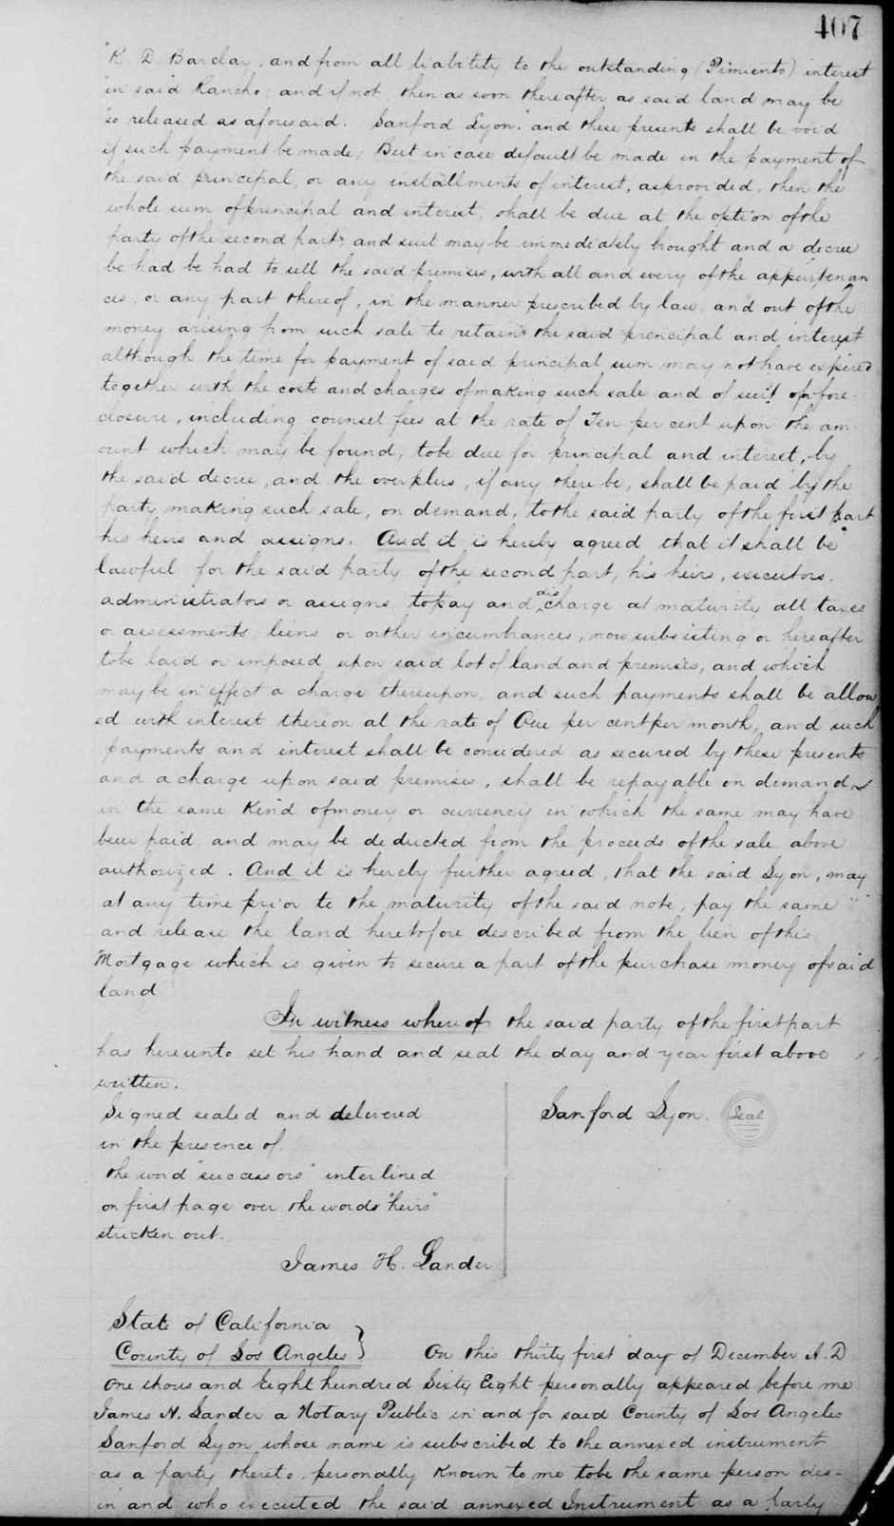 407
"R D Barclay, and from all liability to the outstanding (Pimiento) interest
"in said Rancho; and if not then as soon thereafter as said land may be
"so released as aforesaid. Sanford Lyon." and these presents shall be void
if such payment be made; But in case default be made in the payment of
the said principal, or any installments of interest, as provided, then the
whole sum of principal and interest, shall be due at the option of the
party of the second part, and suit may be immediately brought and a decree
be had be had to sell the said premises, with all and every of the appurtenan
ces, or any part thereof, in the manner prescribed by law, and out of the
money arising from such sale to retain the said principal and interest
although the time for payment of said principal sum may not have expired
together with the costs and charges of making such sale and of suit of fore
closure, including counsel fees at the rate of Ten per cent upon the am
ount which may be found, to be due for principal and interest, by
the said decree, and the overplus, if any there be, shall be paid by the
party making such sale, on demand, to the said party of the first part
his heirs and assigns. And it is hereby agreed that it shall be
lawful for the said party of the second part, his heirs, executors,
administrators or assigns to pay and discharge at maturity all taxes
or assessments, liens or other incumbrances, now subsisting or hereafter
to be laid or imposed upon said lot of land and premises, and which
may be in effect a charge thereupon, and such payments shall be allow
ed with interest thereon at the rate of One per cent per month, and such
payments and interest shall be considered as secured by these presents
and a charge upon said premises, shall be repayable on demand
in the same kind of money or currency in which the same may have
been paid and may be deducted from the proceeds of the sale above
authorized. And it is hereby further agreed, that the said Lyon, may
at any time prior to the maturity of the said note, pay the same
and release the land heretofore described from the lien of this
Mortgage which is given to secure a part of the purchase money of said
land
In witness whereof the said party of the first part
has hereunto set his hand and seal the day and year first above
written.
Signed sealed and delivered
in the presence of.
the word "successors" interlined
on first page over the words "heirs"
stricken out.
James H. Lander
Sanford Lyon. Seal
State of California
County of Los Angeles } On this thirty first day of December A. D
One thousand Eight hundred Sixty Eight personally appeared before me
James H. Lander a Notary Public in and for said County of Los Angeles
Sanford Lyon whose name is subscribed to the annexed instrument
as a party thereto, personally Known to me to be the same person des-
in and who executed the said annexed Instrument as a party